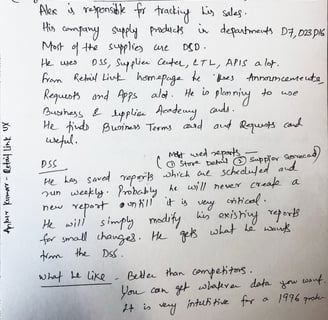 Alex is responsible for tracking his sales.
His company supply products in departments D7, D23 D16
Most of the supplies are DSD.
He uses DSS, Supplier Center, LTL, APIS a lot.
From Retail Link homepage he uses Announcements,
Requests and Apps alot. He is planning to use
Business & Supplier Academy cards.
He finds Business Terms card and Requests card
useful.
Most used reports
DSS (① Store Details ② Supplier scorecard)
He has saved reports which are scheduled and
run weekly. Probably he will never create a
new report untill it is very critical.
He will simply modify his existing reports
for small changes. He gets what he wants
from the DSS.
What he like - Better than competitors.
You can get whatever data you want.
It is very intuitive for a 1996
Ankur Kumar - Retail Link UX